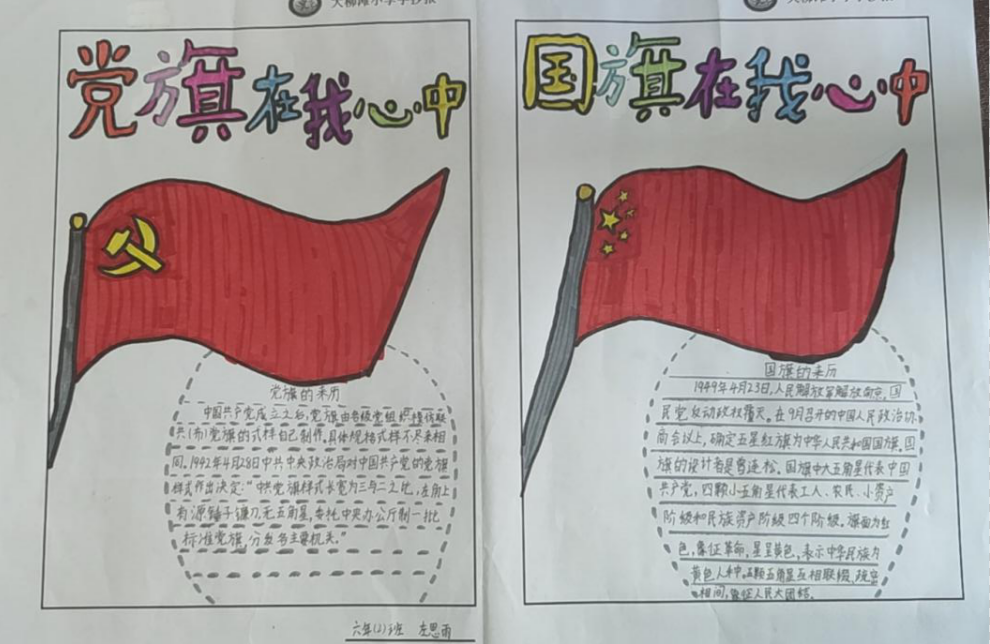 大柳滩小学手抄报
党旗在我心中
党旗的来历
中国共产党成立之初,党旗由各级党组织模仿联
共(布)党旗的式样自己制作,具体规格式样不尽来相
同。1942年4月28日中共中央政治局对中国共产党的党旗
样式作出决定:“中共党旗样式长宽为三与二之比,左角上
有源锤子镰刀,无五角星,委托中央办公厅制一批
标准党旗,分发各主要机关。”
六年(2)班 左思雨
国旗在我心中
国旗的来历
1949年4月23日,人民解放军解放南京,国
民党反动政权覆灭。在9月召开的中国人民政治协
商会以上,确定五星红旗为中华人民共和国国旗。国
旗的设计者是曾连松。国旗中大五角星代表中国
共产党,四颗小五角星代表工人、农民、小资产
阶级和民族资产阶级四个阶级。旗面为红
色,象征革命,星呈黄色,表示中华民族为
黄色人种。五颗五角星互相联缀、疏密
相间,象征人民大团结。